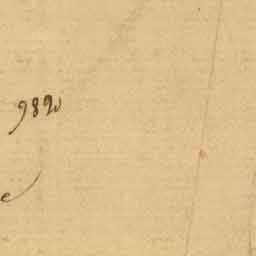 982
e